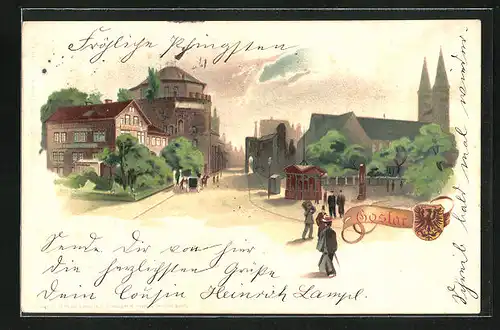 Fröhliche Pfingsten
Goslar
Sende Dir von hier
die herzlichsten Grüße
Dein Cousin Heinrich Lampl.
Schreib bald mal wieder.